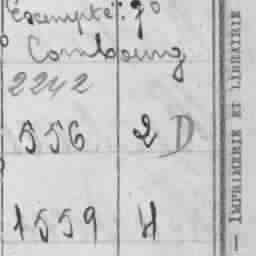 Exempté: 70
Combourg
2242
556 2 D
1559 H
— IMPRIMERIE ET LIBRAIRIE